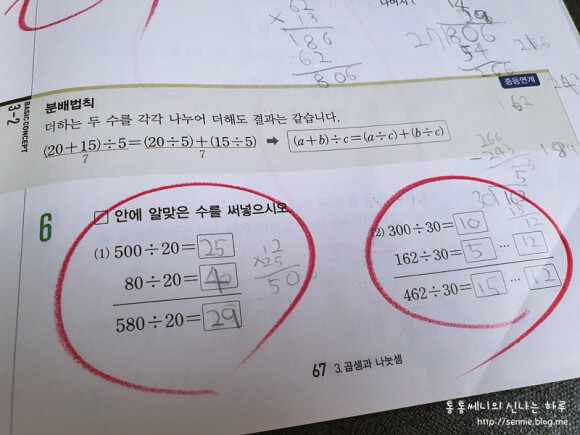 62
× 13
186
62
806
29
27)806
54
분배법칙
중등연계
더하는 두 수를 각각 나누어 더해도 결과는 같습니다.
(20+15)÷5=(20÷5)+(15÷5) ➡ (a+b)÷c=(a÷c)+(b÷c)
7 7
BASIC CONCEPT
3-2
162
266
-243
5
30)162
12
6 □ 안에 알맞은 수를 써넣으시오.
(1) 500÷20=25
80÷20=4
580÷20=29
12
×25
50
(2) 300÷30=10
162÷30=5 ··· 12
462÷30=15 ··· 12
67 3. 곱셈과 나눗셈
통통쎄니의 신나는 하루
http://sennie.blog.me